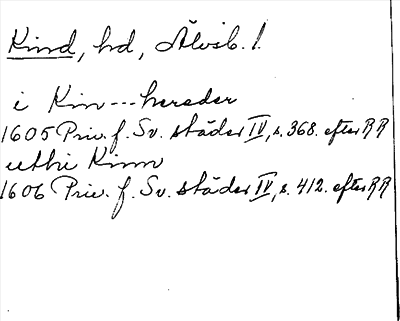 Kind, hd, Älvsb. l.
i Kin---hereder
1605 Priv. f. Sv. städer IV, s. 368. efter RR
uthi Kinn
1606 Priv. f. Sv. städer IV, s. 412. efter RR